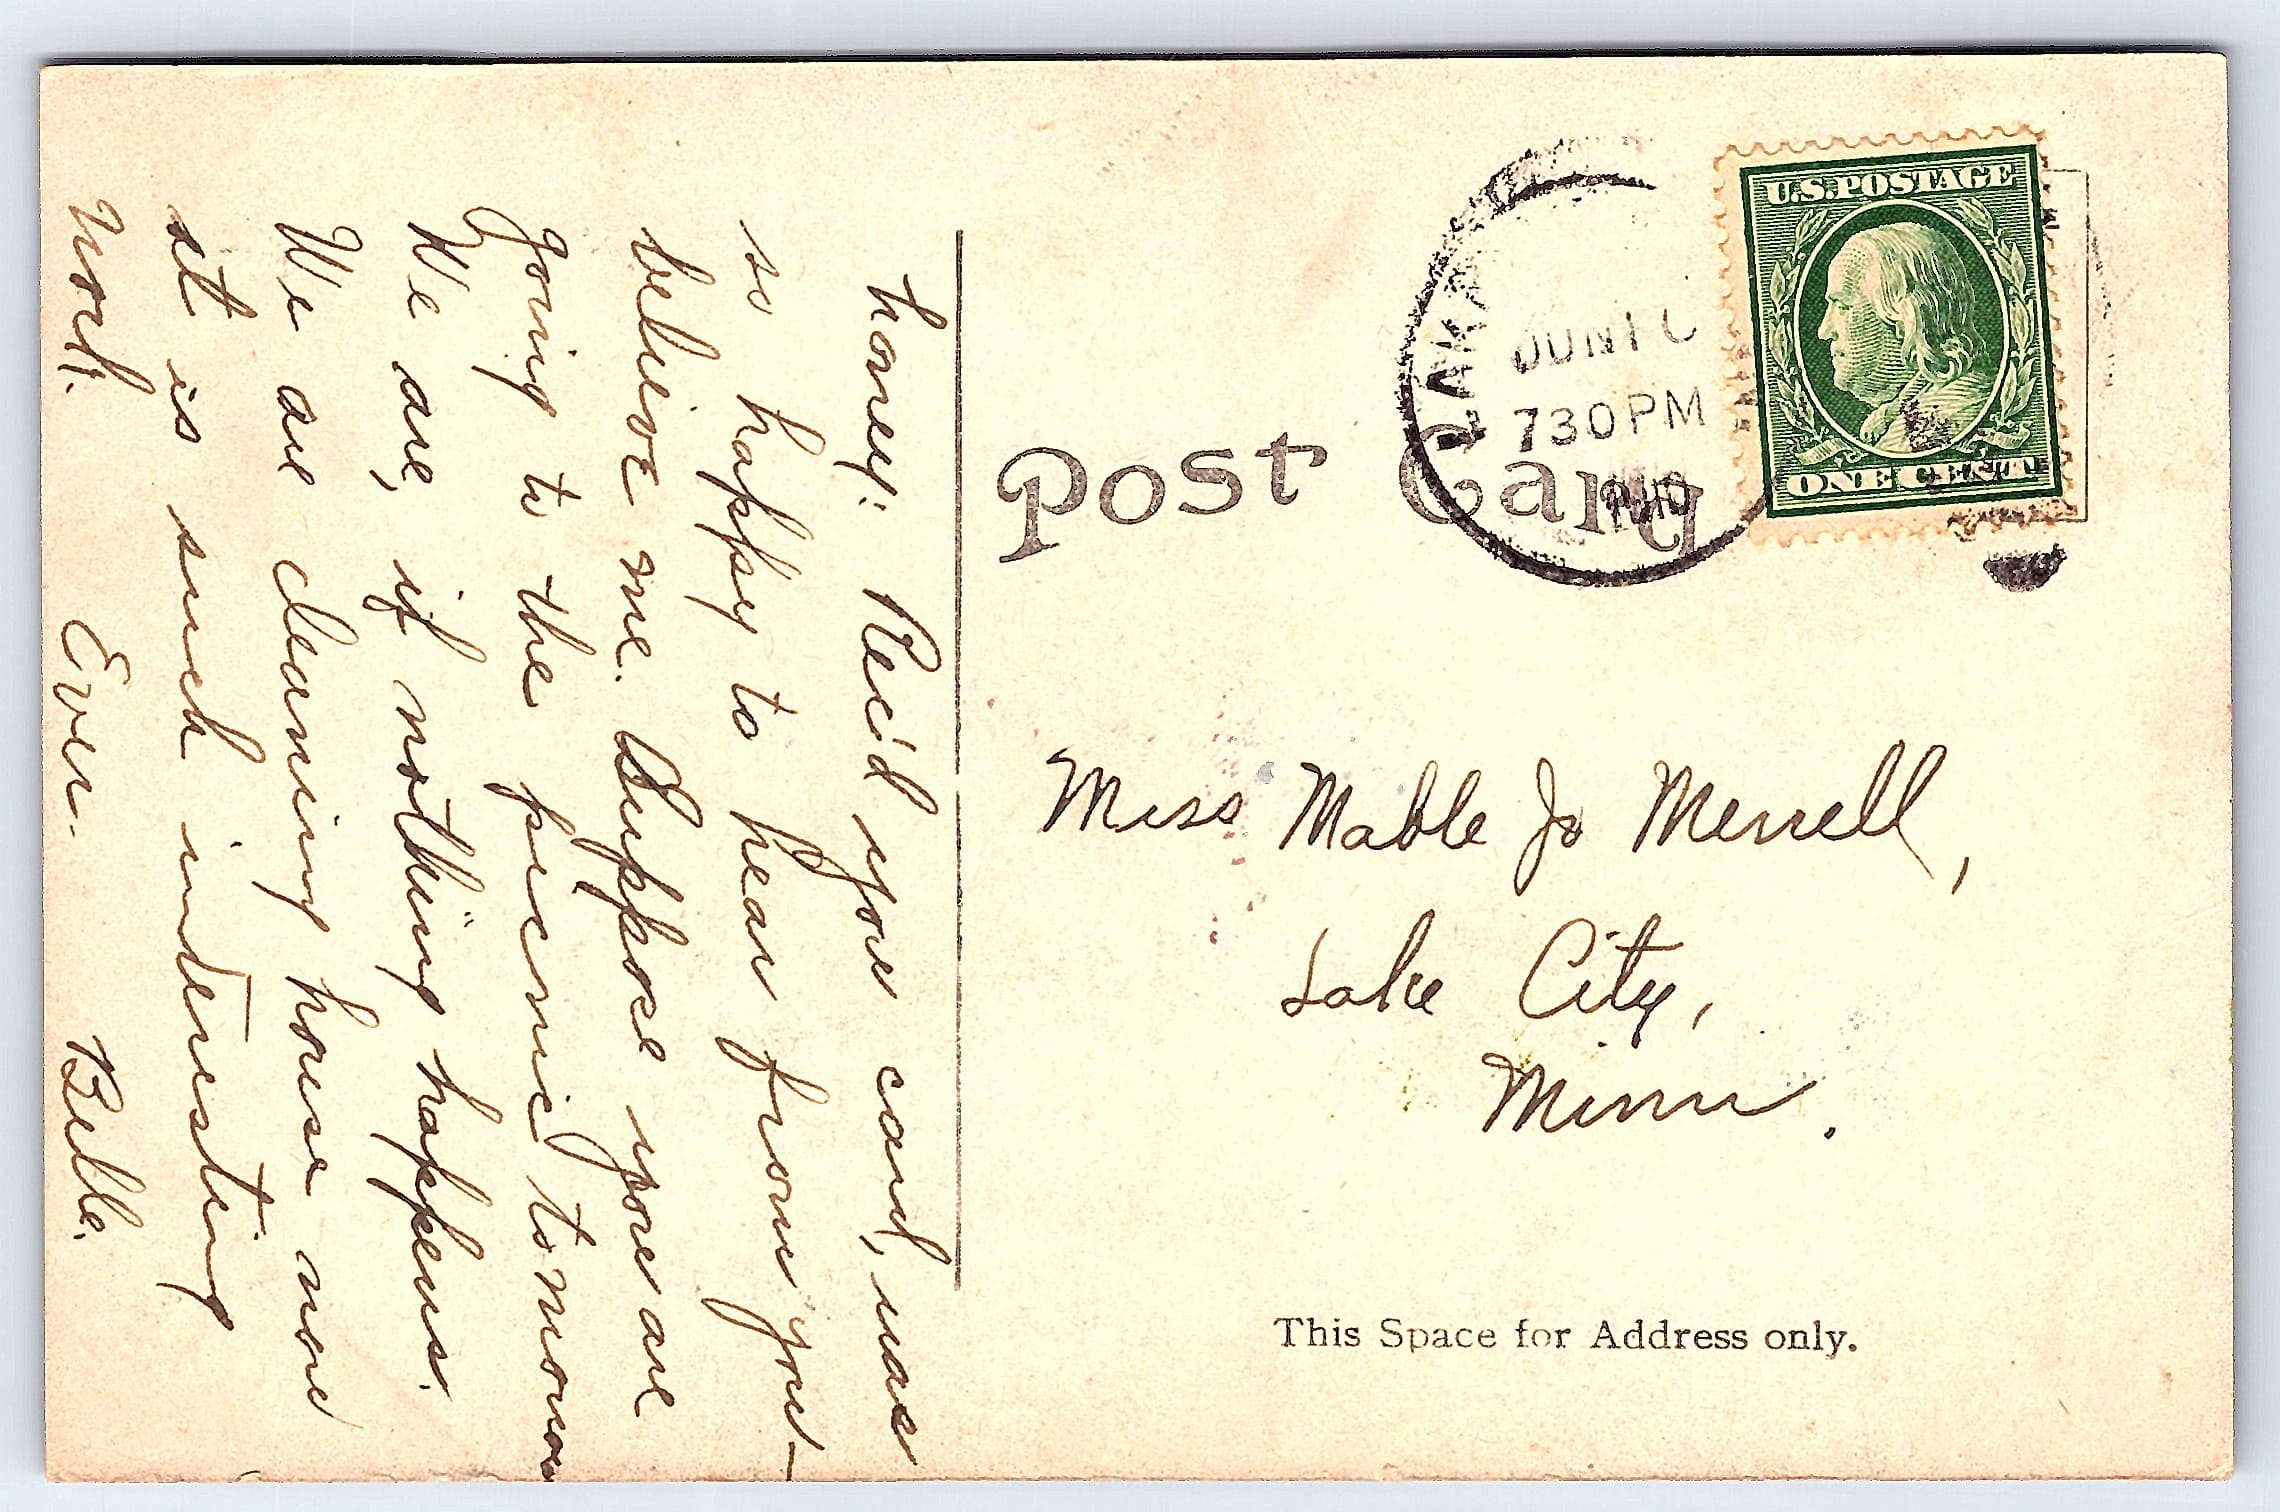 honey: Rec'd your card, was
so happy to hear from you—
believe me. Suppose you are
going to the picnic tomorrow
We are, if nothing happens.
We are cleaning house now
it is such interesting
work. Ever. Belle.
Post Card
LAK
JUN 1
730 PM
1910
U.S. POSTAGE
ONE CENT
Miss Mable Jo Merrell,
Lake City,
Minn.
This Space for Address only.